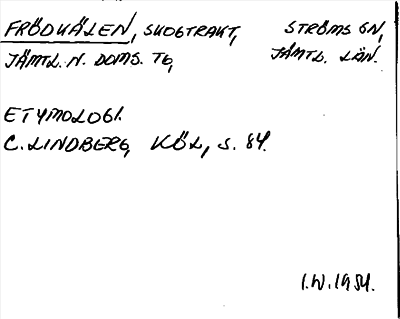 FRÖDKÄLEN, SKOGTRAKT, STRÖMS SN,
JÄMTL. N. DOMS. TG, JÄMTL. LÄN.
ETYMOLOGI.
C. LINDBERG, KÖL, S. 84.
I.W. 1954.